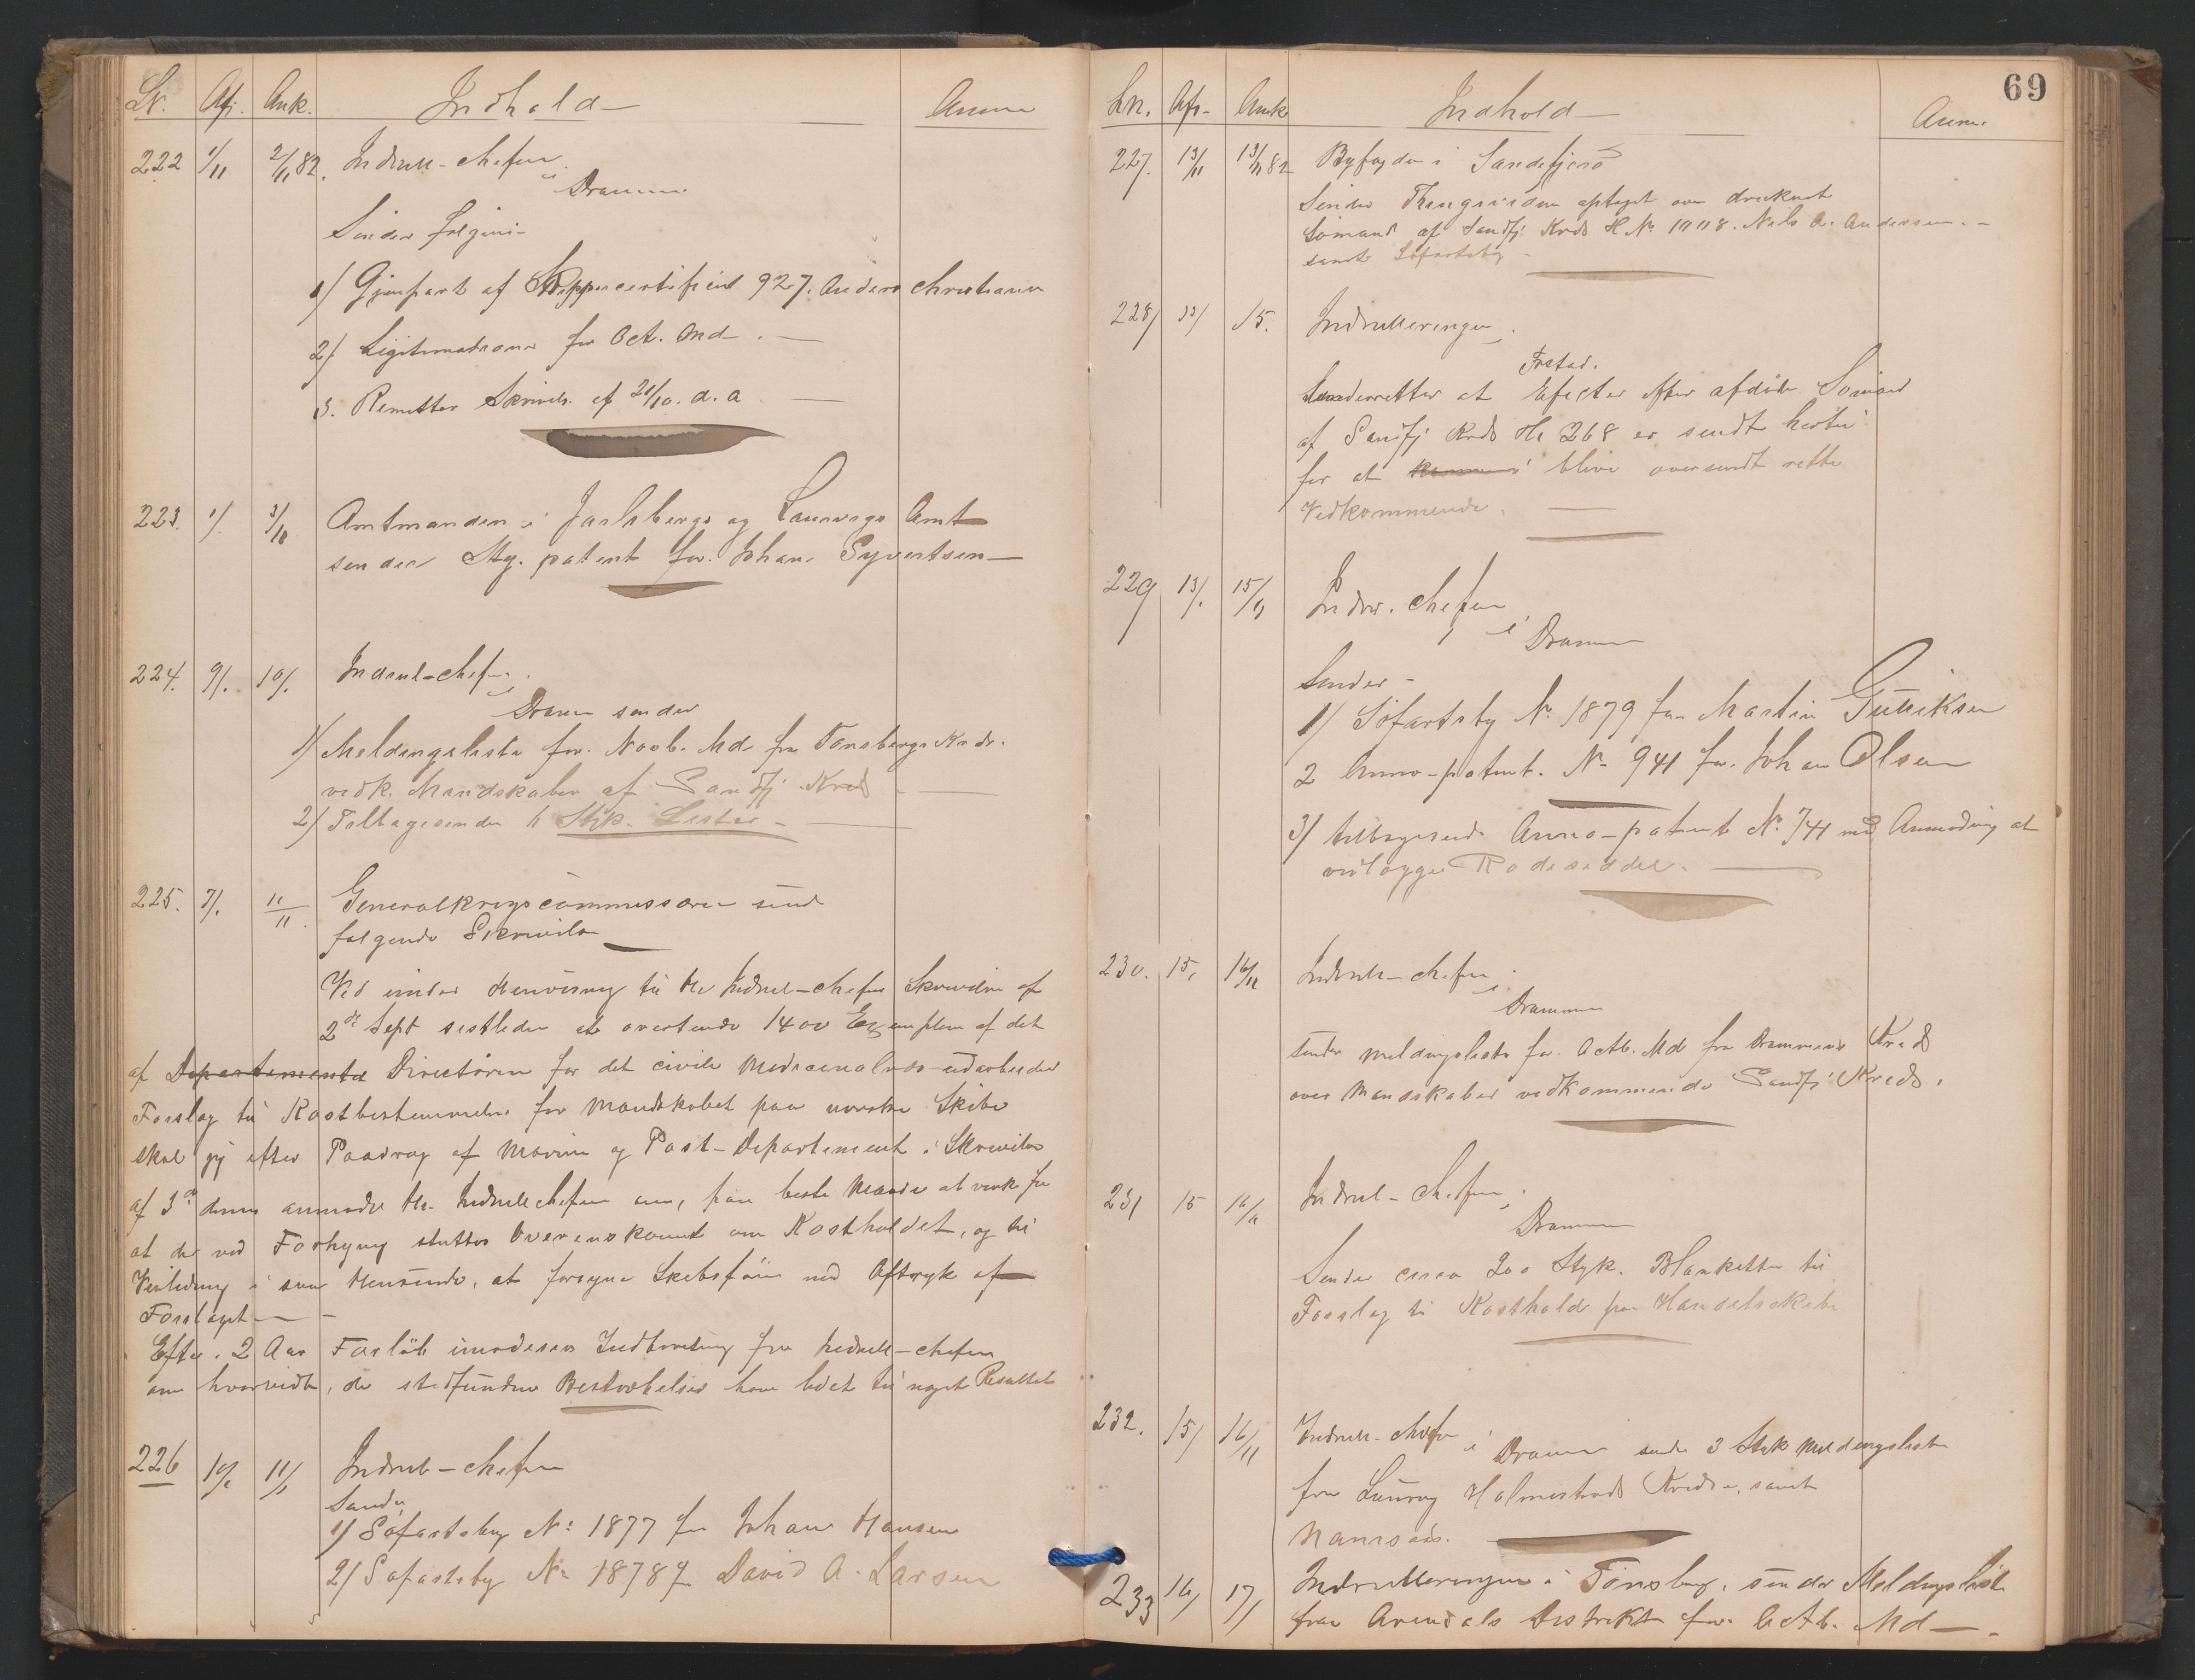 Lr. Afs. Ank. Indhold Anm
222 1/11 2/11 82. Indrull-chefen
i Drammen
Sender følgen-
1/ Gjenpart af Skippercertificat 927. Anders Christiansen
2/ Legitimationer for Oct. Md-.
3. Remitter Skrivels. af 21/10. d. a
223. 1/. 3/10 Amtmanden i Jarlsberg og Laurvigs Amt
sender Stg. patent for Johan Syvertsen
224. 9/. 10/. Indrul-chefen
i Dramen sender
1/ Meldingsliste for. Novb. Md. fra Tønsbergs Krds.
vedk. Mandskaber af Sandfj. Kreds
2/ Tilbagesender Styk. Lister
225. 7/. 11/11. Generalkrigscommissæren send
følgende Skrivelse
Ved under Henvisning til Hr Indrul-chefens Skrivelse af
2de Sept sidstleden at oversende 1400 Exemplarer af det
af Departementet Directøren for det civile Medicinalvæs udarbeidet
Forslag til Kostbestemmelse for Mandskabet paa norske Skibe
skal jeg efter Paadrag af Marine og Post-Departement i Skrivelse
af 3de dennes anmode Hr. Indrullchefen om, paa beste Maade at virke for
at der ved Forhyring sluttes Overenskomst om Kostholdet, og til
Veiledning i saa Henseende, at forsyne Skibsfører med Aftryk af
Forslaget
Efter 2 Aars Forløb imødesees Indberetning fra Indrull-chefen
om hvorvidt, de stedfundne Bestræbelser have ledet til noget Resultat
226 10/. 11/. Indrul-chefen
Sender
1/ Søfartsbog No 1877 for Johan Hansen
2/ Søfartsbog No 1878 David A. Larsen
69
Lr. Afs- Ank Indhold Anm.
227. 13/11 13/11 82 Byfogden i Sandefjord
Sender Thingsvidne optaget over druknet
Sømand af Sandfj. Krds H No 1008. Nils A. Andersen.
samt Søfartsbog
228/ 13/ 15. Indrulleringen i
Frstad.
Underretter at Efecter efter afdøde Sømand
af Sandfj Krds Hr 268 er sendt hertil
for at blive oversendt rette
Vedkommende.
229 13/. 15/11 Indr. chefen
i Drammen
Sender-
1/ Søfartsbg No 1879 for Martin Gulliksen
2 Anno-patent. No 941 for Johan Olsen
3/ tilbagesend. Anno-patent No 741 med Anmodning at
vedlægges Rodeseddel.
230. 15. 16/11 Indrull-chefen
i Drammen
sender meldingsliste for. Octb. Md fra Drammens Kreds
over Mandskaber vedkommende Sandfj Kreds.
231 15 16/11 Indrul-chefen i
Drammen
Sender circa 200 Styk. Blanketter til
Forslag til Kosthold paa Handelsskibe
232. 15/ 16/11 Indrull-chefen i Dramen sender 3 Styk Meldingsliste
fra Laurvig Holmestrands Kredse, samt
233 16/ 17/ Indrulleringen i Tønsberg, sender Meldingsliste
fra Arendals Distrikt for Octb. Md